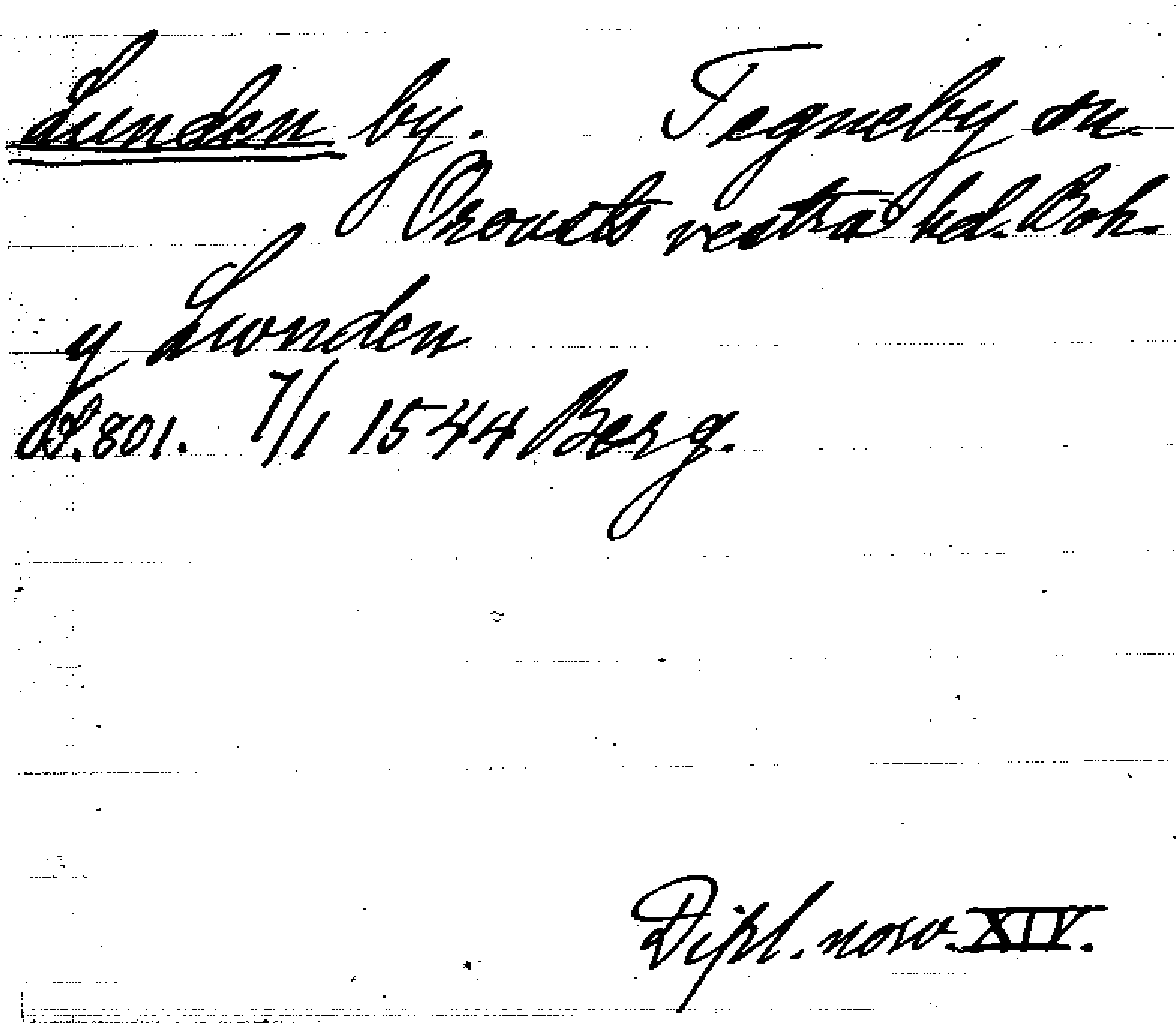 Lunden by. Tegneby sn.
Orousts vestra hd. Boh.
y Lwnden
S. 801. 7/1 1544 Berg.
Dipl. norv. XIV.